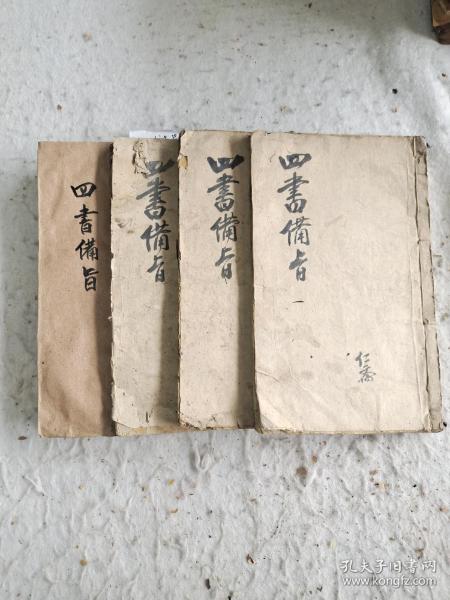 四書備旨
四書備旨
四書備旨
四書備旨
一
孔夫子旧书网
www.kongfz.com